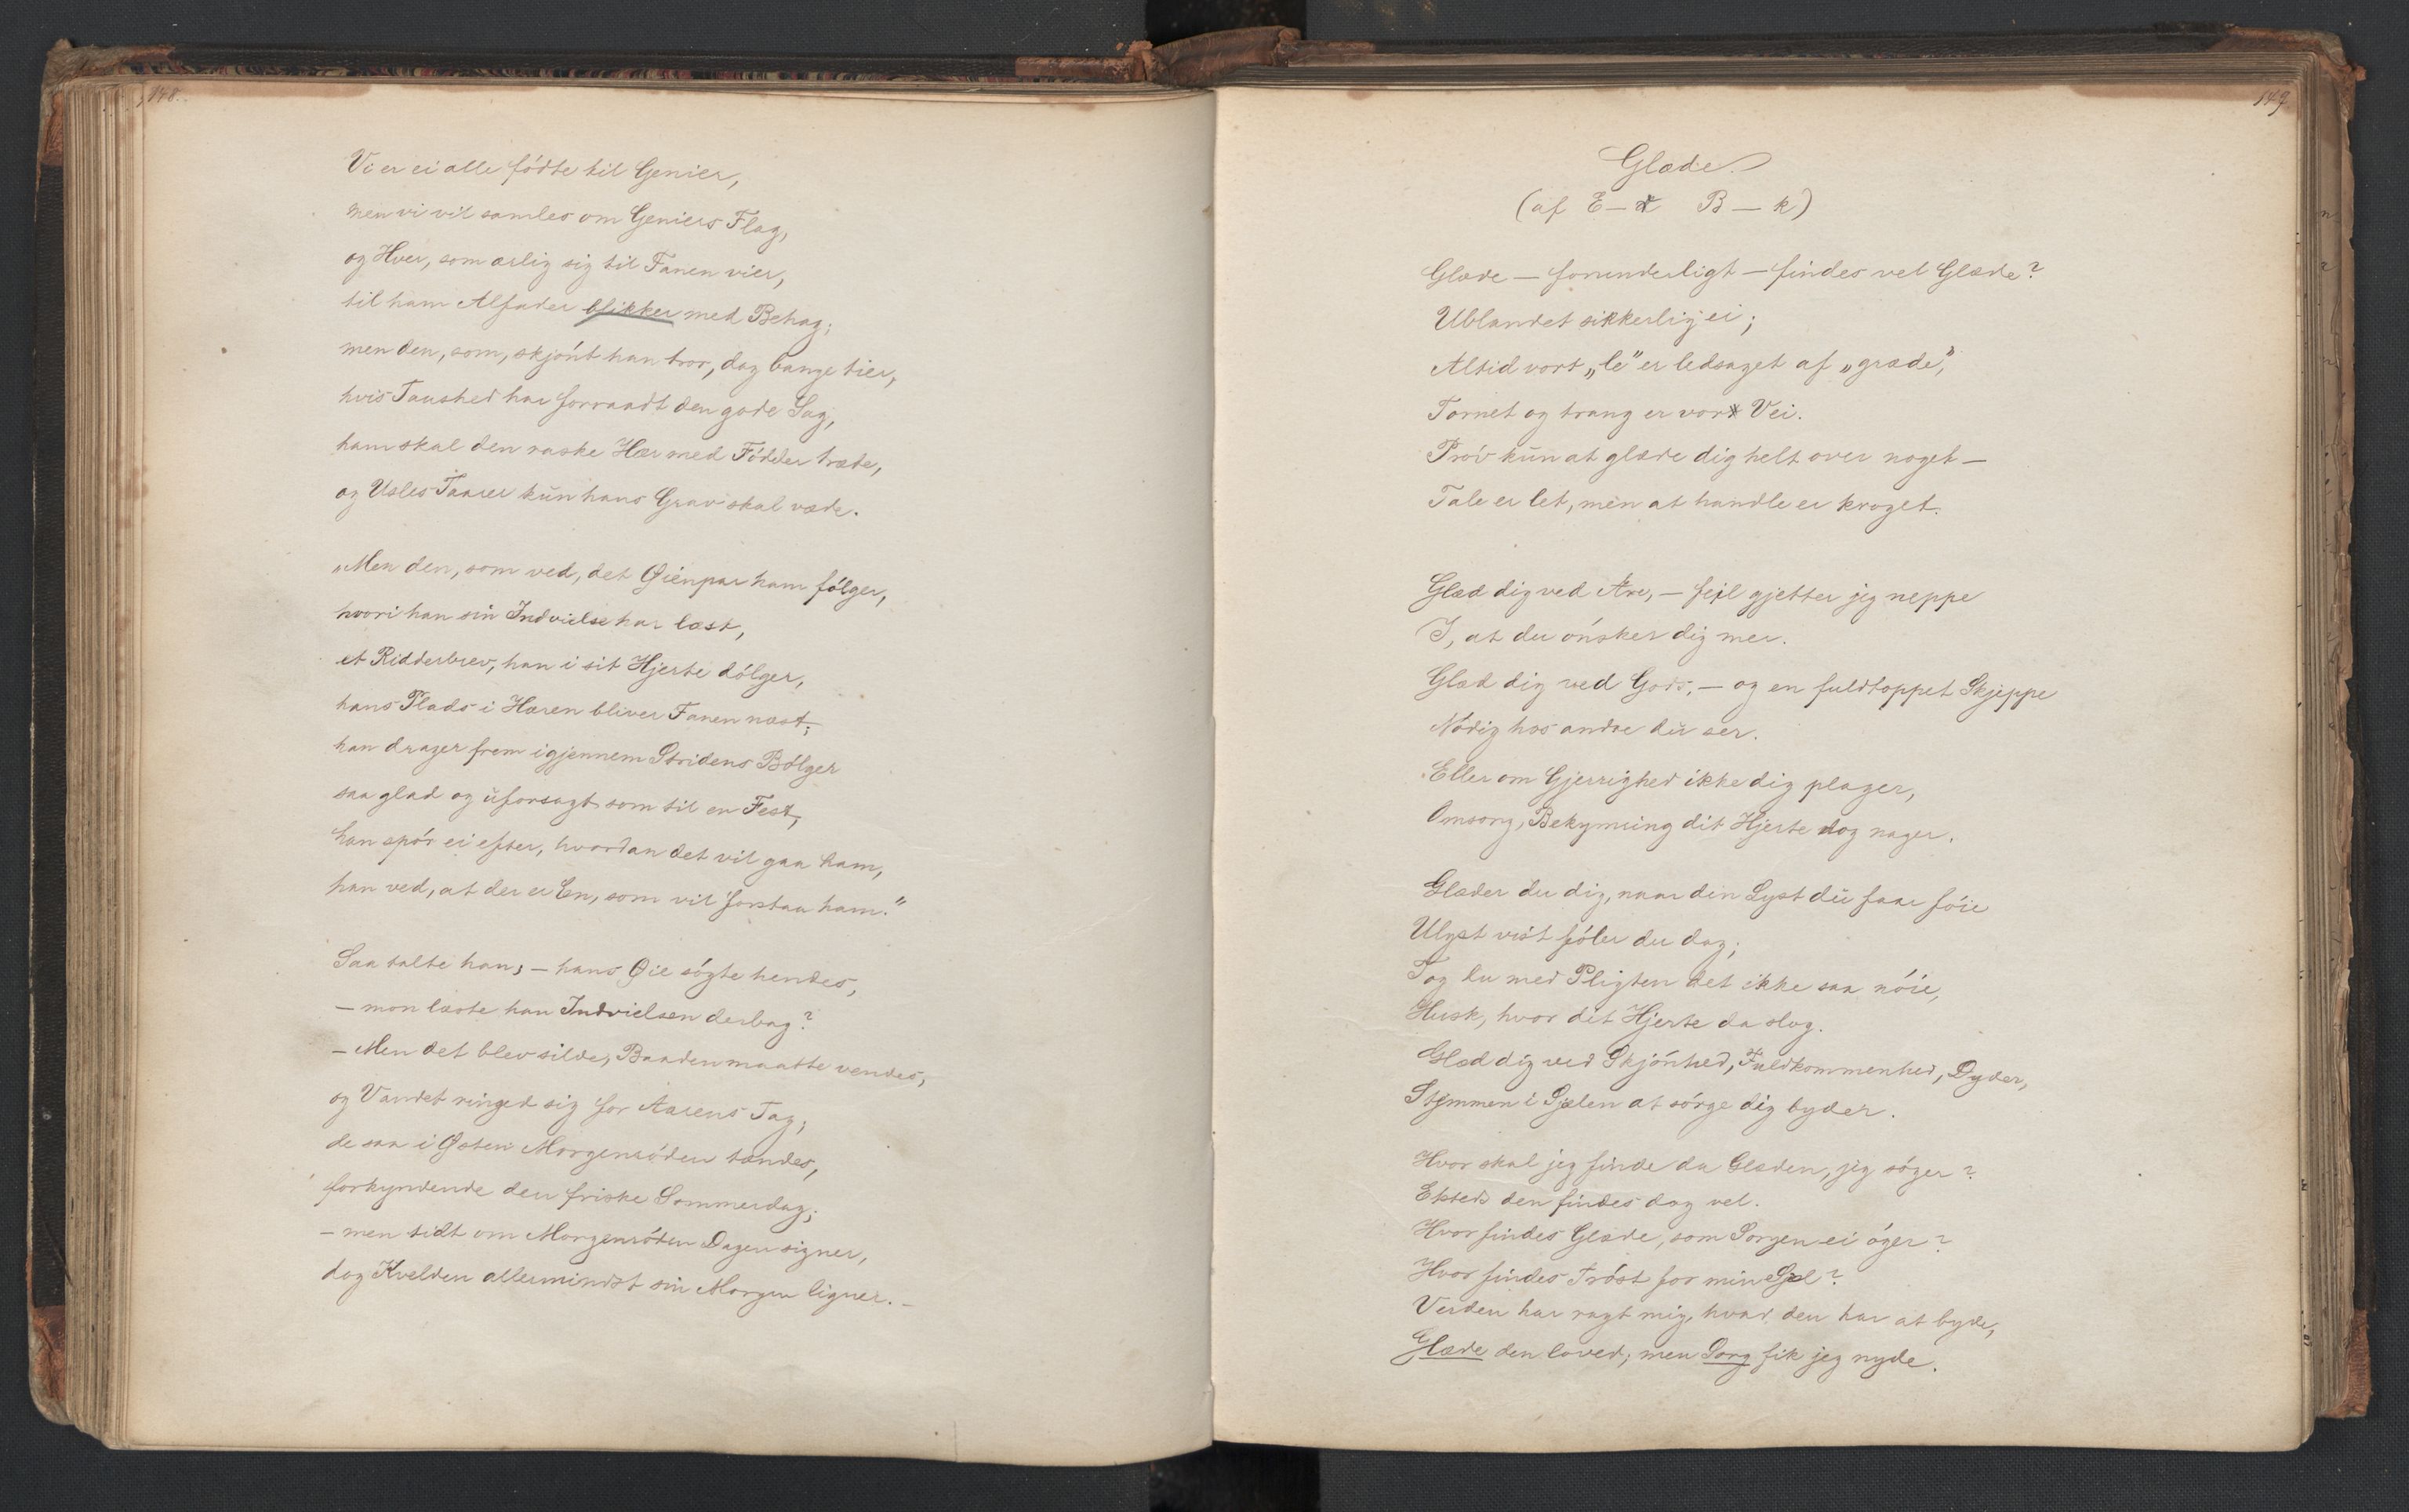 148.
Vi er ei alle fødte til Genier,
men vi vil samles om Geniers Flag,
og Hver, som ærlig sig til Fanen vier,
til ham Alfader blikker med Behag;
men den, som, skjønt han tror, dog bange tier,
hvis Taushed har forraadt den gode Sag,
ham skal den raske Hær med Fødder træde,
og Usles Taarer kun hans Grav skal væde.
„Men den, som ved, det Øienpar ham følger,
hvori han sin Indvielse har læst,
et Ridderbrev, han i sit Hjerte dølger,
hans Plads i Hæren bliver Fanen næst;
han drager frem igjennem Stridens Bølger
saa glad og uforsagt som til en Fest,
han spør ei efter, hvordan det vil gaa ham,
han ved, at der er En, som vil forstaa ham.”
Saa talte han; — hans Øie søgte hendes,
— mon læste han Indvielsen derbag?
— Men det blev silde, Baaden maatte vendes,
og Vandet ringed sig for Aarens Tag,
de saa i Østen Morgenrøden tændes,
forkyndende den friske Sommerdag;
— men tidt om Morgenrøden Dagen signer,
dog Kvelden allermindst sin Morgen ligner. —
149
Glæde.
(af E— B—k)
Glæde — forunderligt — findes vel Glæde?
Ublandet sikkerlig ei;
Altid vort „le” er ledsaget af „græde”,
Tornet og trang er vor Vei.
Prøv kun at glæde dig helt over noget —
Tale er let, men at handle er kroget.
Glæd dig ved Ære, — feil gjetter jeg neppe
I, at du ønsker dig mer.
Glæd dig ved Gods, — og en fuldtoppet Skjeppe
Nødig hos andre du ser.
Eller om Gjerrighed ikke dig plager,
Omsorg, Bekymring dit Hjerte dog nager.
Glæder du dig, naar din Lyst du faar føie
Ulyst vist føler du dog;
Tog du med Pligten det ikke saa nøie,
Husk, hvor dit Hjerte da slog.
Glæd dig ved Skjønhed, Fuldkommenhed, Dyder,
Stemmen i Sjælen at sørge dig byder.
Hvor skal jeg finde da Glæden, jeg søger?
Etsteds den findes dog vel.
Hvor findes Glæde, som Sorgen ei øger?
Hvor findes Trøst for min Sjæl?
Verden har ragt mig, hvad den har at byde,
Glæde den loved, men Sorg fik jeg nyde.